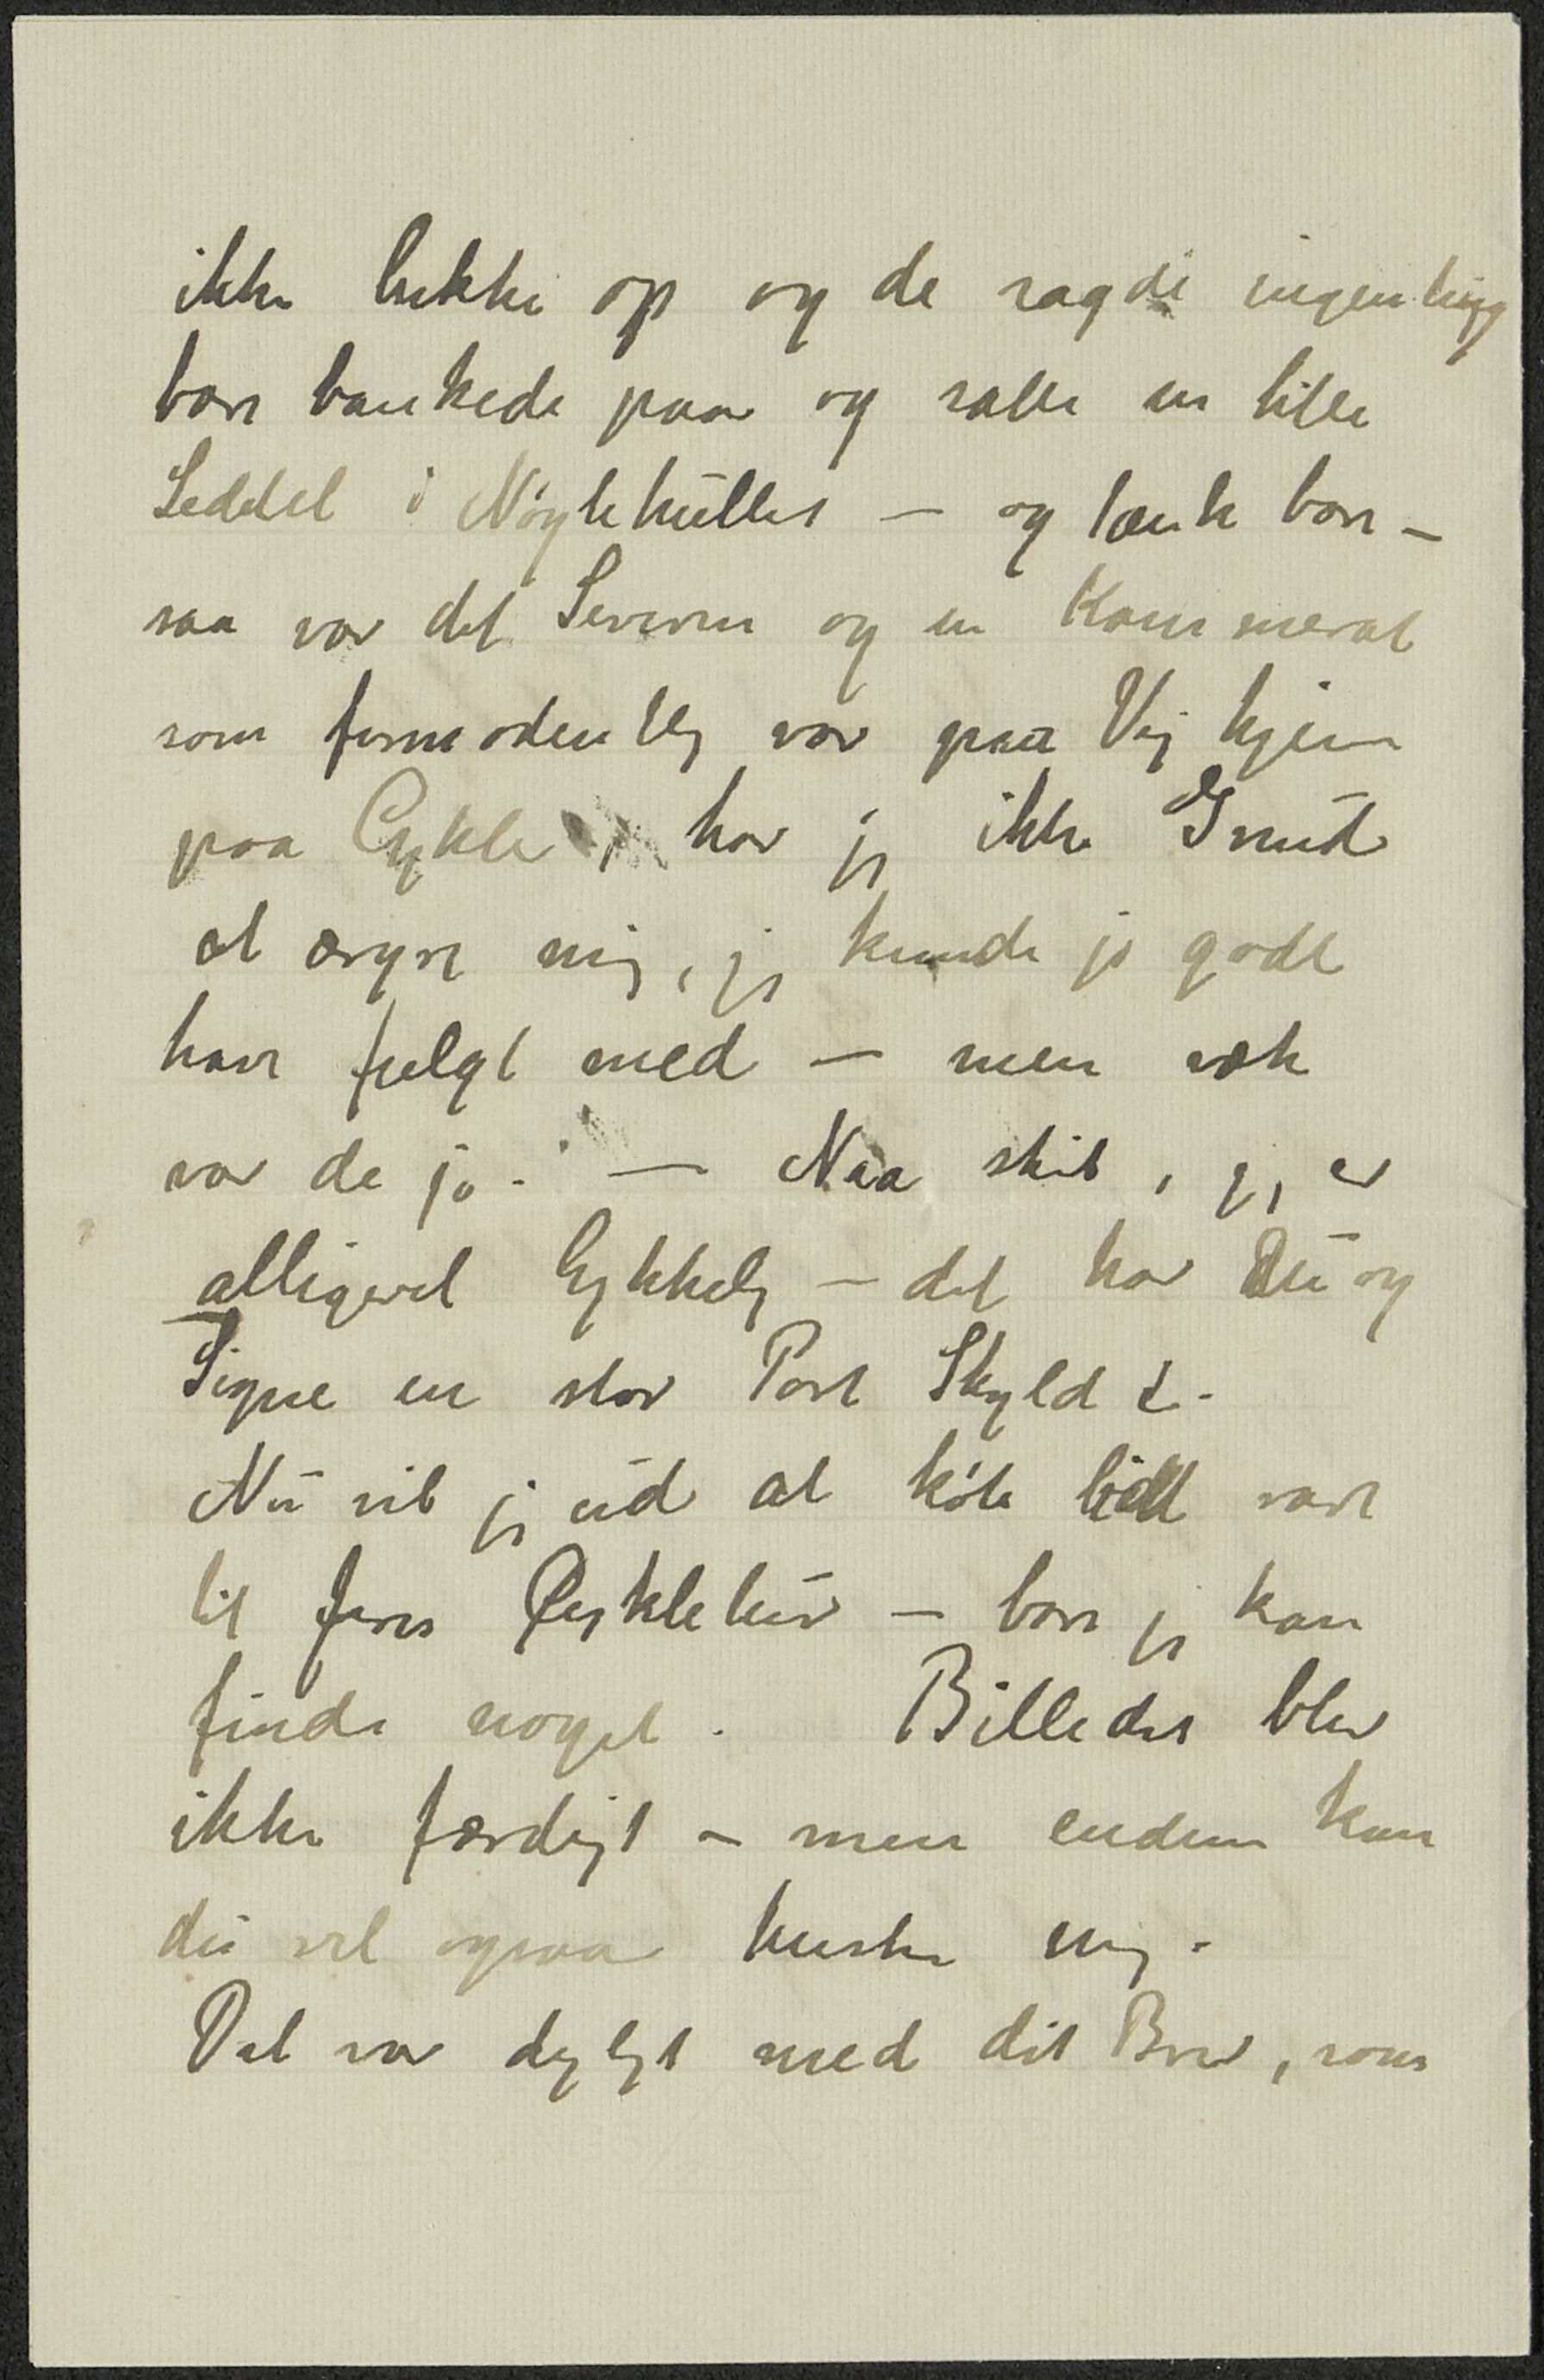 ikke lukke op og de sagde ingenting
bare bankede paa og satte en lille
Seddel i Nøglehullet – og tænk bare –
saa var det Severin og en Kammerat
som formodentlig var paa Vej hjem
paa Cykle, har jeg ikke Grund
at ærgre mig, jeg kunde jo godt
have fulgt med – men væk
var de jo. – Naa skit, jeg er
alligevel lykkelig – det har Du og
Signe en stor Part Skyld i.
Nu vil jeg ud at købe lidt rart
til Cykletur – bare jeg kan
finde noget. Billedet blev
ikke færdigt – men endnu kan
du vel ogsaa huske mig.
Det var dygtigt med dit Brev, som